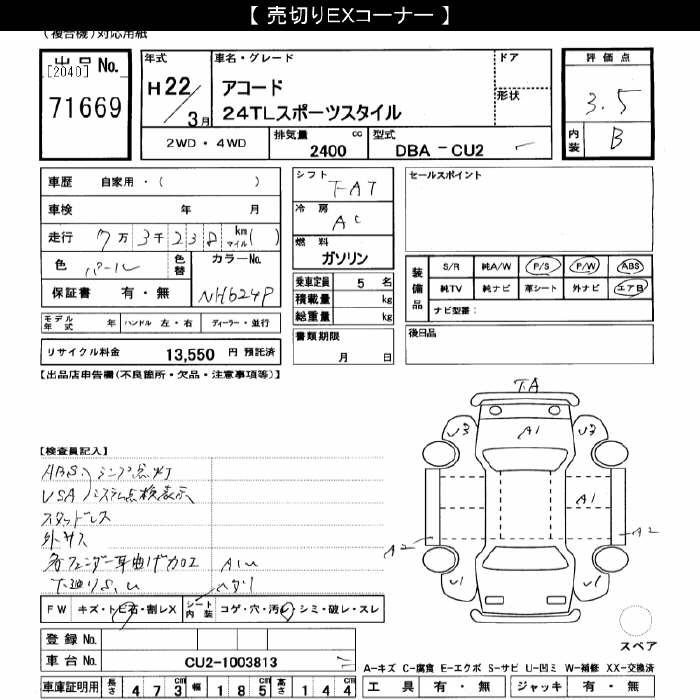 【 売切りEXコーナー 】
(複合機)対応用紙
出品No.
[2040]
71669
年式
H22/3月
車名・グレード
アコード
24TLスポーツスタイル
ドア
形状
評価点
3.5
内装 B
2WD・4WD
排気量 cc
2400
型式
DBA-CU2
車歴 自家用・( )
車検 年 月
走行 7万3千23 km マイル( )
色 パール 色替
カラーNo.
NH624P
保証書 有・無
シフト
F-AT
冷房
AC
燃料
ガソリン
乗車定員 5 名
積載量 kg
総重量 kg
セールスポイント
装備品
S/R 純A/W P/S P/W ABS
純TV 純ナビ 革シート 外ナビ エアB
ナビ型番:
モデル年式 年 ハンドル 左・右 ディーラー・並行
リサイクル料金 13,550 円 預託済
書類期限
月 日
後日品
【出品店申告欄(不良箇所・欠品・注意事項等)】
【検査員記入】
ABSランプ点灯
VSAシステム点検表示
スタッドレス
外サス
各フェンダー耳曲げ加工
下廻りS,U
A1U
ヘタリ
T.A
U3
A1
U2
A1
A2
A2
U1
U1
スペア
FW キズ・トビ石・割レX
シート内装 コゲ・穴・汚レ・シミ・破レ・スレ
登録No.
車台No. CU2-1003813
車庫証明用 長さ 473cm 幅 185cm 高さ 144cm
A-キズ C-腐食 E-エクボ S-サビ U-凹ミ W-補修 XX-交換済
工具 有・無 ジャッキ 有・無